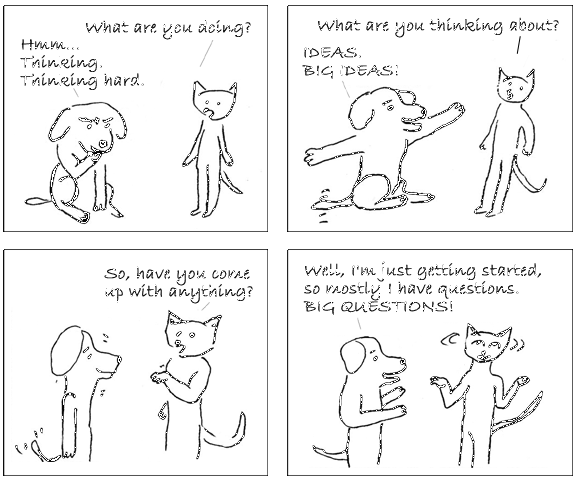 What are you doing?
Hmm...
Thinking.
Thinking hard.
What are you thinking about?
IDEAS.
BIG IDEAS!
So, have you come
up with anything?
Well, I'm just getting started,
so mostly I have questions.
BIG QUESTIONS!